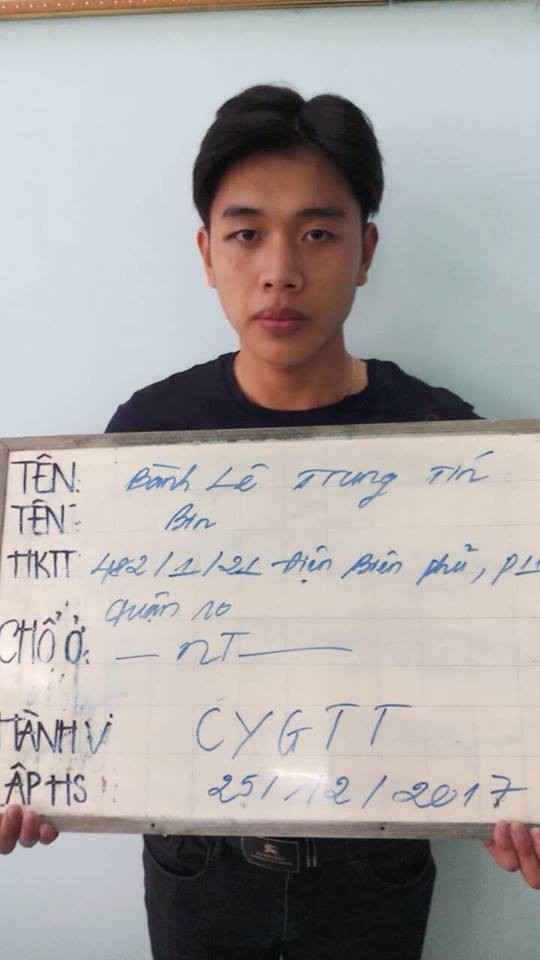 TÊN: Bành Lê Trung Tín
TÊN: Bin
HKTT 482/1/21 Điện Biên phủ, P11
Quận 10
CHỔ Ở: — nT —
HÀNH VI CYGTT
LẬP HS 25/12/2017